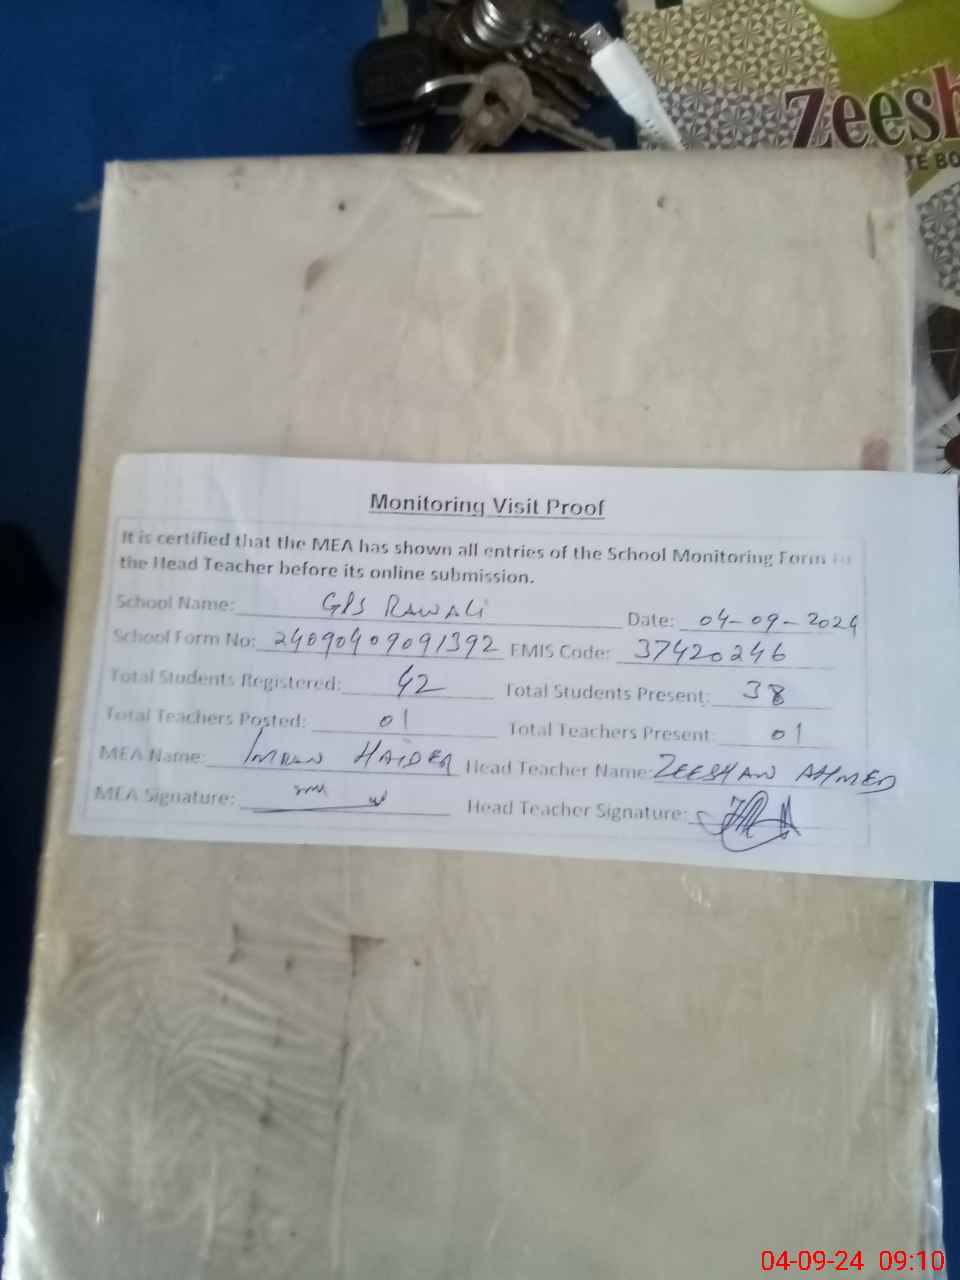 Zeesh
TE BO
Monitoring Visit Proof
It is certified that the MEA has shown all entries of the School Monitoring Form to
the Head Teacher before its online submission.
School Name: GPS RAWALI Date: 04-09-2024
School Form No: 24090409091392 EMIS Code: 37420246
Total Students Registered: 42 Total Students Present: 38
Total Teachers Posted: 01 Total Teachers Present: 01
MEA Name: IMRAN HAIDER Head Teacher Name: ZEESHAN AHMED
MEA Signature: Head Teacher Signature:
04-09-24 09:10